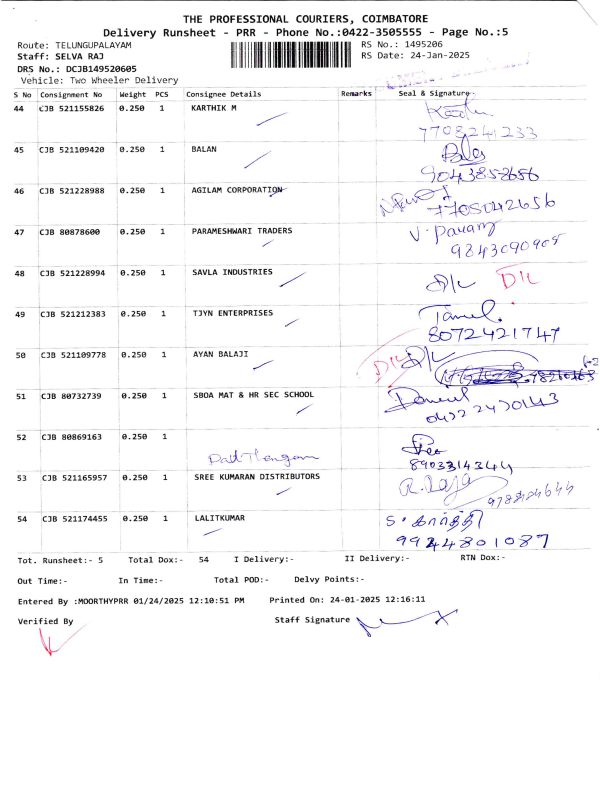 THE PROFESSIONAL COURIERS, COIMBATORE
Delivery Runsheet - PRR - Phone No.:0422-3505555 - Page No.:5
Route: TELUNGUPALAYAM
RS No.: 1495206
Staff: SELVA RAJ
RS Date: 24-Jan-2025
DRS No.: DCJB149520605
Vehicle: Two Wheeler Delivery
S No Consignment No Weight PCS Consignee Details Remarks Seal & Signature
44 CJB 521155826 0.250 1 KARTHIK M
7708241233
45 CJB 521109420 0.250 1 BALAN
9043852656
46 CJB 521228988 0.250 1 AGILAM CORPORATION
7705042656
47 CJB 80878600 0.250 1 PARAMESHWARI TRADERS V.
9843090909
48 CJB 521228994 0.250 1 SAVLA INDUSTRIES D/L D/L
49 CJB 521212383 0.250 1 TJYN ENTERPRISES
8072421747
50 CJB 521109778 0.250 1 AYAN BALAJI D/L D/L
51 CJB 80732739 0.250 1 SBOA MAT & HR SEC SCHOOL
0422 2470143
52 CJB 80869163 0.250 1
8903314344
53 CJB 521165957 0.250 1 SREE KUMARAN DISTRIBUTORS R. Raja
54 CJB 521174455 0.250 1 LALITKUMAR S. கார்த்தி
9944801087
Tot. Runsheet:- 5 Total Dox:- 54 I Delivery:- II Delivery:- RTN Dox:-
Out Time:- In Time:- Total POD:- Delvy Points:-
Entered By :MOORTHYPRR 01/24/2025 12:10:51 PM Printed On: 24-01-2025 12:16:11
Verified By Staff Signature